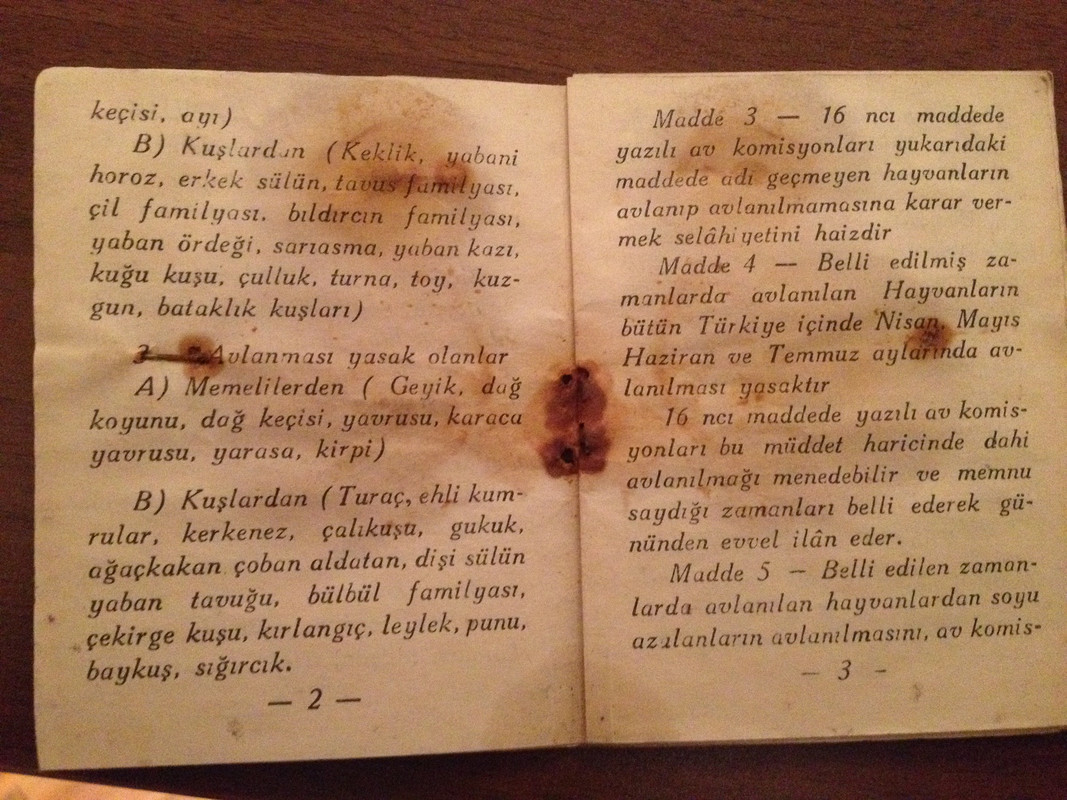 keçisi, ayı)
B) Kuşlardan (Keklik, yabani
horoz, erkek sülün, tavus familyası,
çil familyası. bıldırcın familyası,
yaban ördeği, sarıasma, yaban kazı,
kuğu kuşu, çulluk, turna, toy, kuz-
gun, bataklık kuşları)
3 — Avlanması yasak olanlar
A) Memelilerden ( Geyik, dağ
koyunu, dağ keçisi, yavrusu, karaca
yavrusu, yarasa, kirpi)
B) Kuşlardan (Turaç, ehli kum-
rular, kerkenez, çalıkuşu, gukuk,
ağaçkakan çoban aldatan, dişi sülün
yaban tavuğu, bülbül familyası,
çekirge kuşu, kırlangıç, leylek, punu,
baykuş, sığırcık.
— 2 —
Madde 3 — 16 ncı maddede
yazılı av komisyonları yukarıdaki
maddede adı geçmeyen hayvanların
avlanıp avlanılmamasına karar ver-
mek selâhiyetini haizdir
Madde 4 — Belli edilmiş za-
manlarda avlanılan Hayvanların
bütün Türkiye içinde Nisan, Mayıs
Haziran ve Temmuz aylarında av-
lanılması yasaktır
16 ncı maddede yazılı av komis-
yonları bu müddet haricinde dahi
avlanılmağı menedebilir ve memnu
saydığı zamanları belli ederek gü-
nünden evvel ilân eder.
Madde 5 — Belli edilen zaman-
larda avlanılan hayvanlardan soyu
azalanların avlanılmasını, av komis-
— 3 -